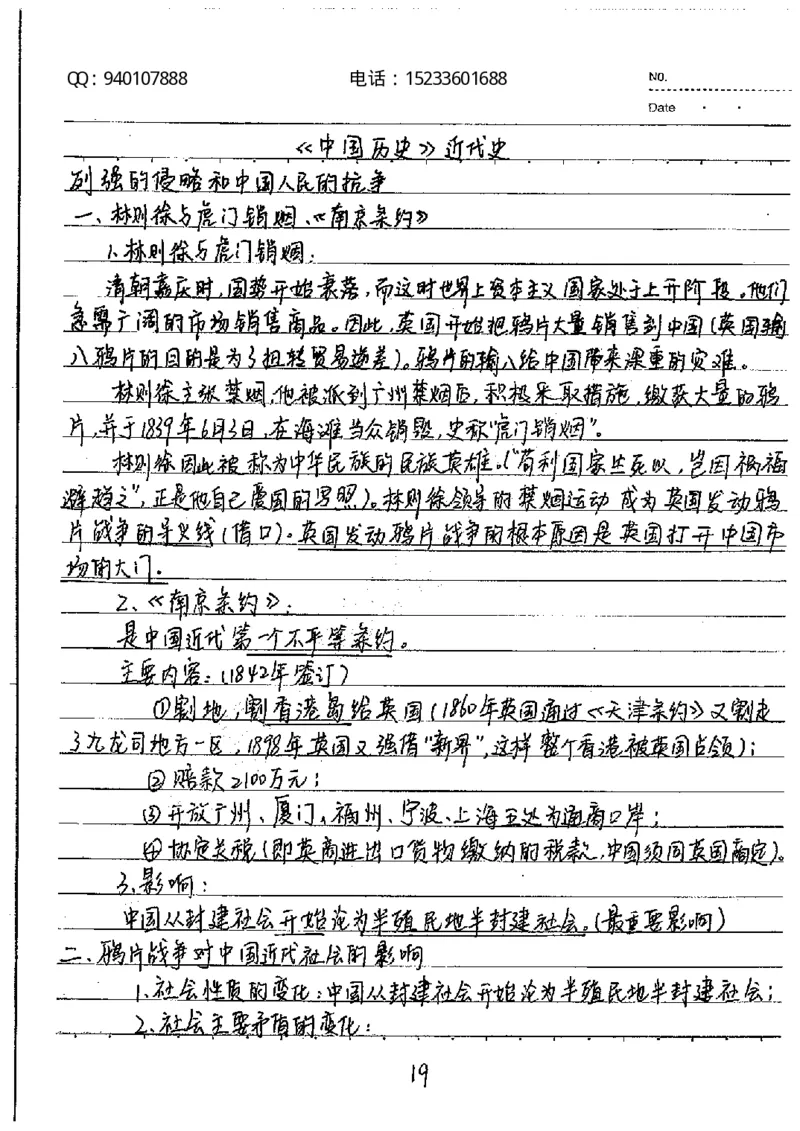 QQ：940107888 电话：15233601688 NO.
Date
《中国历史》近代史
列强的侵略和中国人民的抗争
一、林则徐与虎门销烟、《南京条约》
1.林则徐与虎门销烟：
清朝嘉庆时，国势开始衰落，而这时世界上资本主义国家处于上升阶段。他们
急需广阔的市场销售商品。因此，英国开始把鸦片大量销售到中国（英国输
入鸦片的目的是为了扭转贸易逆差）。鸦片的输入给中国带来深重的灾难。
林则徐主张禁烟，他被派到广州禁烟后，积极采取措施，缴获大量的鸦
片，并于1839年6月3日，在海滩当众销毁，史称"虎门销烟"。
林则徐因此被称为中华民族的民族英雄。（"苟利国家生死以，岂因祸福
避趋之"，正是他自己爱国的写照）。林则徐领导的禁烟运动成为英国发动鸦
片战争的导火线（借口）。英国发动鸦片战争的根本原因是英国打开中国市
场的大门。
2、《南京条约》：
是中国近代第一个不平等条约。
主要内容：（1842年签订）
①割地，割香港岛给英国（1860年英国通过《天津条约》又割走
了九龙司地方一区，1898年英国又强借"新界"，这样整个香港被英国占领）；
②赔款2100万元；
③开放广州、厦门、福州、宁波、上海五处为通商口岸；
④协定关税（即英商进出口货物缴纳的税款，中国须同英国商定）。
3.影响：
中国从封建社会开始沦为半殖民地半封建社会。（最重要影响）
二、鸦片战争对中国近代社会的影响
1.社会性质的变化：中国从封建社会开始沦为半殖民地半封建社会；
2.社会主要矛盾的变化：
19